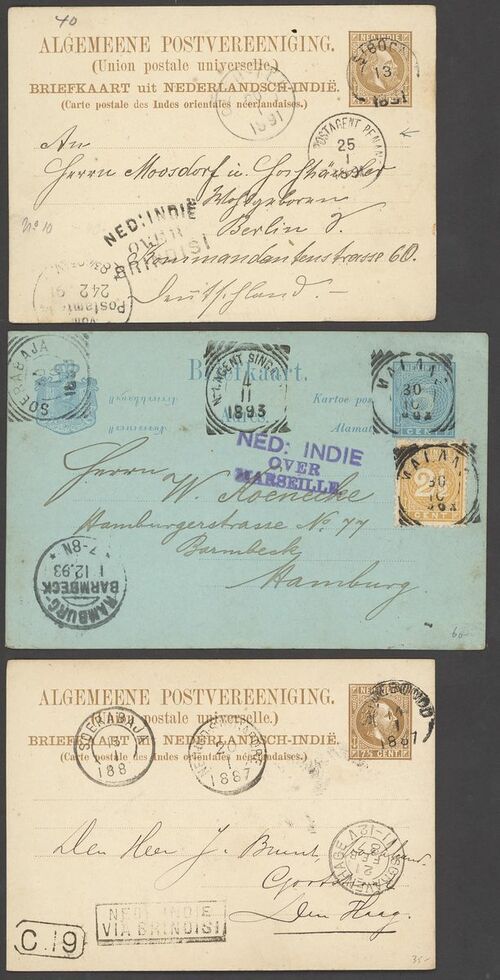 40
NED. INDIE
ALGEMEENE POSTVEREENIGING.
(Union postale universelle.)
BRIEFKAART uit NEDERLANDSCH-INDIË.
(Carte postale des Indes orientales néerlandaises.)
13
1891
1891
POSTAGENT PENANG
25
1
1891
An
Herrn Moosdorf u.
Wohlgeboren
Berlin
Kommandantenstrasse 60.
Deutschland.
No 10
NED: INDIE
OVER
BRINDISI
24 2 91
Postamt
SOERABAJA
Briefkaart.
Adres.
Kaartoe pos
Alamat
N.I. AGENT SING
4
11
1893
MALANG
30
10
CENT
MALANG
30
10
2½
CENT
NED: INDIE
OVER
MARSEILLE
Herrn W. Koenecke
Hamburgerstrasse No 77
Barmbeck
Hamburg.
HAMBURG-BARMBECK
1 12.93
7-8N
60-
NED. INDIE
ALGEMEENE POSTVEREENIGING.
(Union postale universelle.)
BRIEFKAART uit NEDERLANDSCH-INDIË.
(Carte postale des Indes orientales néerlandaises.)
7½ CENT.
1887
SOERABAJA
188
1887
Den Heer J. Brunt,
Den Haag.
'S GRAVENHAGE
NED. INDIE
VIA BRINDISI
C.19
35-